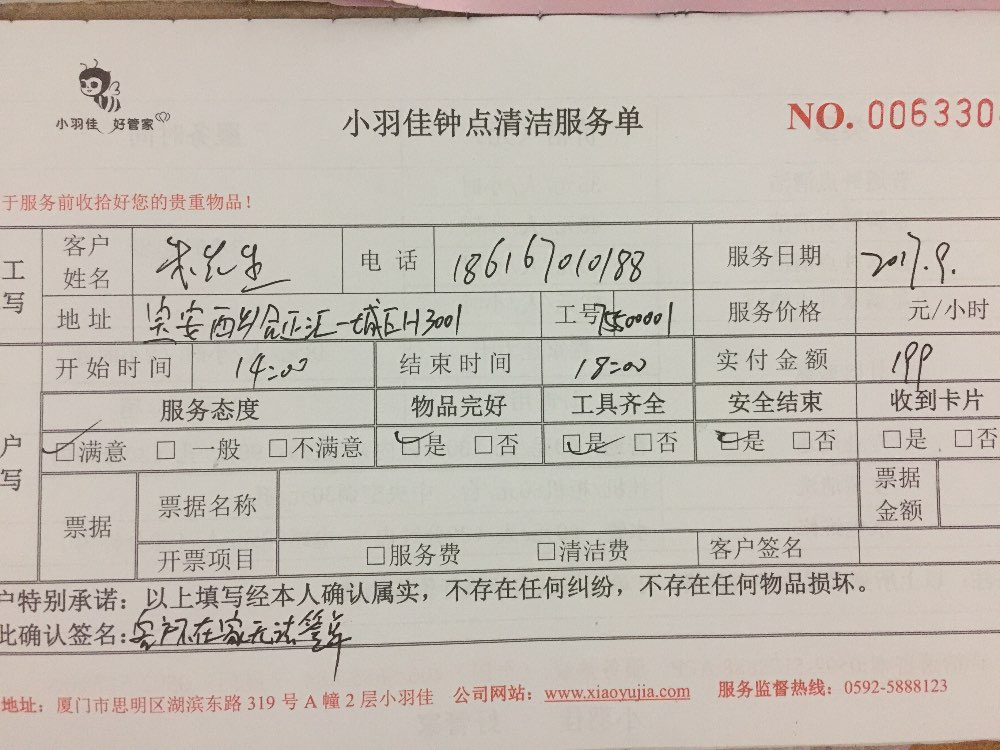 小羽佳 好管家
小羽佳钟点清洁服务单
NO. 006330
于服务前收拾好您的贵重物品！
工 写
客户姓名 先生 电话 186167010188 服务日期 2017.9.
地址 宝安西乡合正汇一城E1-13001 工号 服务价格 元/小时
户 写
开始时间 14:00 结束时间 18:00 实付金额 199
服务态度 物品完好 工具齐全 安全结束 收到卡片
□满意 □一般 □不满意 □是 □否 □是 □否 □是 □否 □是 □否
票据 票据名称 票据金额
开票项目 □服务费 □清洁费 客户签名
户特别承诺：以上填写经本人确认属实，不存在任何纠纷，不存在任何物品损坏。
此确认签名:客户不在家无法签单
地址：厦门市思明区湖滨东路 319 号 A 幢 2 层小羽佳 公司网站：www.xiaoyujia.com 服务监督热线：0592-5888123